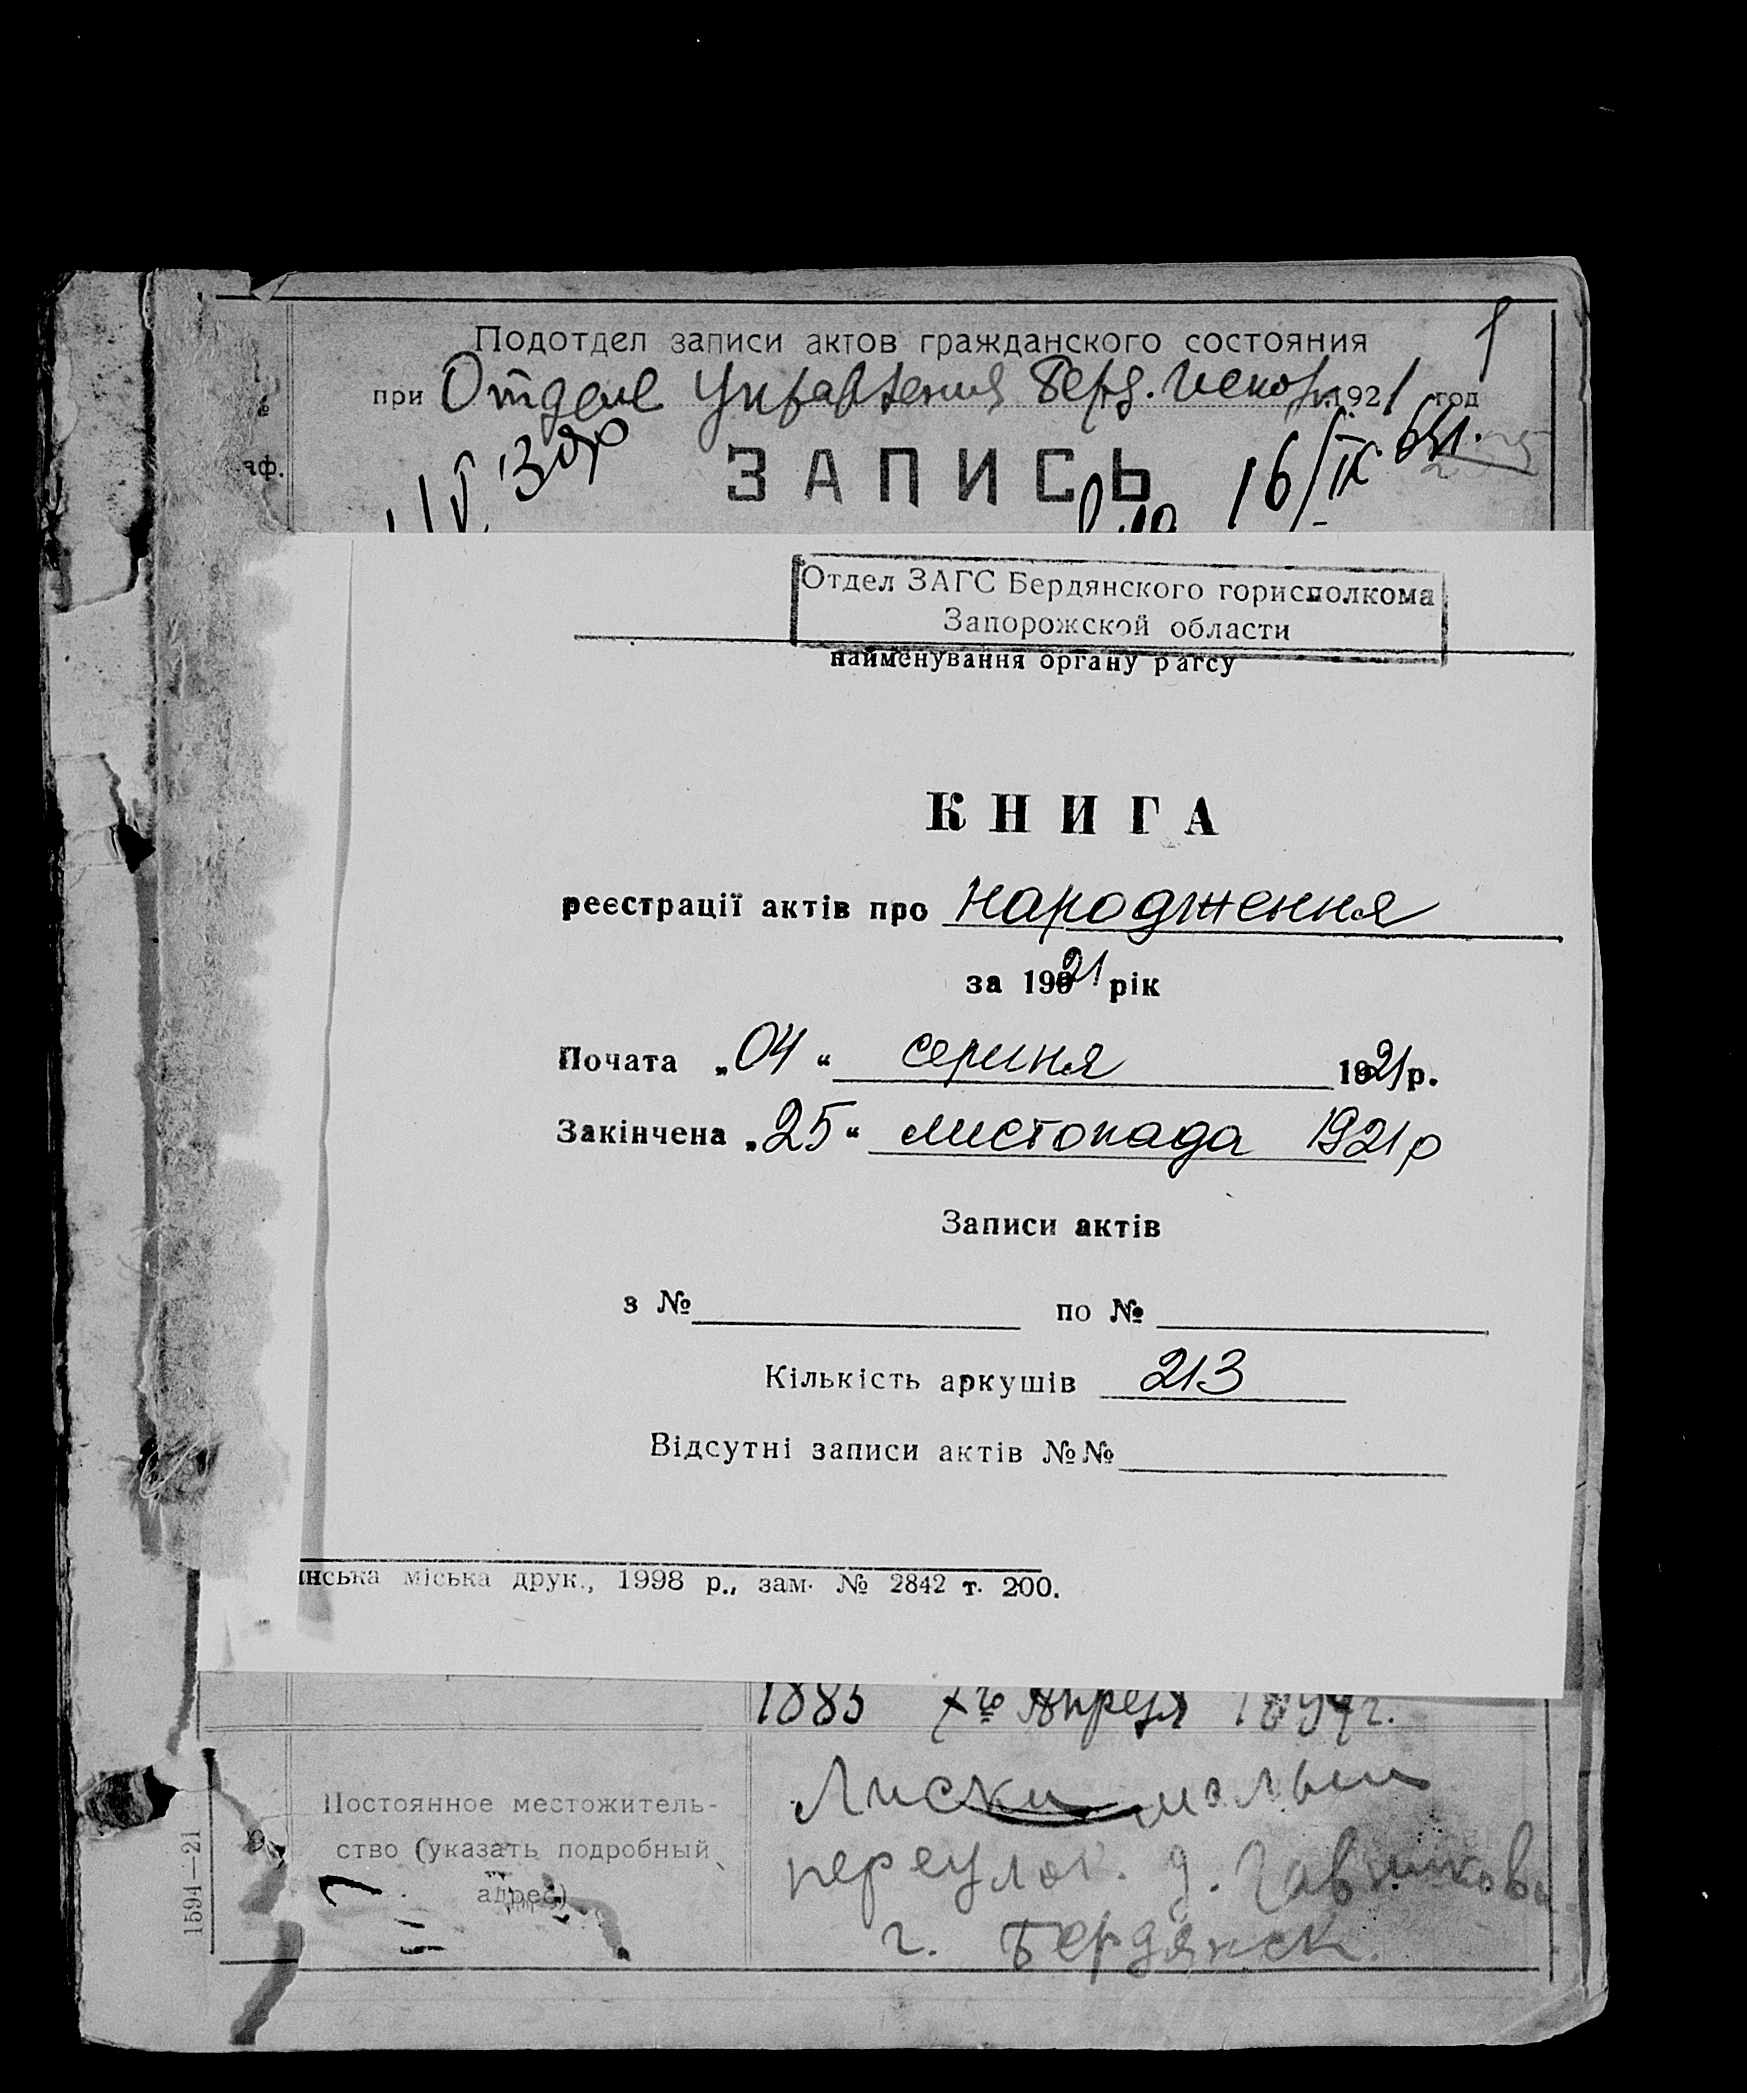 1
Подотдел записи актов гражданского состояния
при Отделе Управления Берд. Исполк. 1921 год
ЗАПИСЬ
16/IX
аф.
Отдел ЗАГС Бердянского горисполкома
Запорожской области
найменування органу рагсу
КНИГА
реєстрації актів про народження
за 1921 рік
Почата „04“ серпня 1921 р.
Закінчена „25“ листопада 1921 р
Записи актів
з № по №
Кількість аркушів 213
Відсутні записи актів №№
інська міська друк., 1998 р., зам. № 2842 т. 200.
1883 Апреля
Постоянное местожитель-
ство (указать подробный
адрес)
Лиски
переулок. д.
г. Бердянск.
1594—21